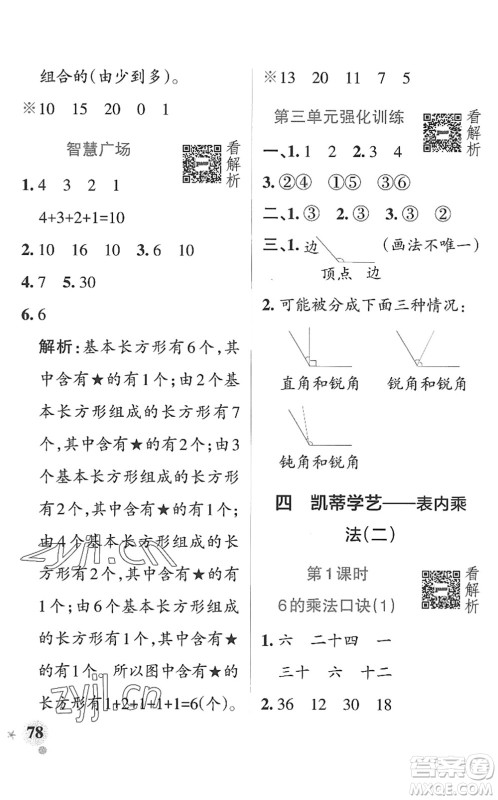 组合的(由少到多)。
※10 15 20 0 1
智慧广场
看解析
1.4 3 2 1
4+3+2+1=10
2.10 16 10 3.6 10
4.7 5.30
6.6
解析:基本长方形有6个,其
中含有★的有1个;由2个基
本长方形组成的长方形有7
个,其中含有★的有2个;由3
个基本长方形组成的长方形
有2个,其中含有★的有1个;
由4个基本长方形组成的长
方形有2个,其中含有★的有
1个;由6个基本长方形组成
的长方形有1个,其中含有★
的有1个。所以,含有★的长
方形有1+2+1+1+1=6(个)。
78
※13 20 11 7 5
第三单元强化训练
看解析
一、1.3 1 4 2.3
3.②④ ①⑤ ③⑥
二、1.③ 2.③ 3.③ ②
三、1.边 (画法不唯一)
顶点 边
2.可能被分成下面三种情况:
直角和锐角 锐角和锐角
钝角和锐角
四 凯蒂学艺——表内乘
法(二)
第1课时
6的乘法口诀(1)
看解析
1.六 二十四 一
三十 六 十二
2.36 12 30 18
zyjl.cn
zyjl.cn
作业帮